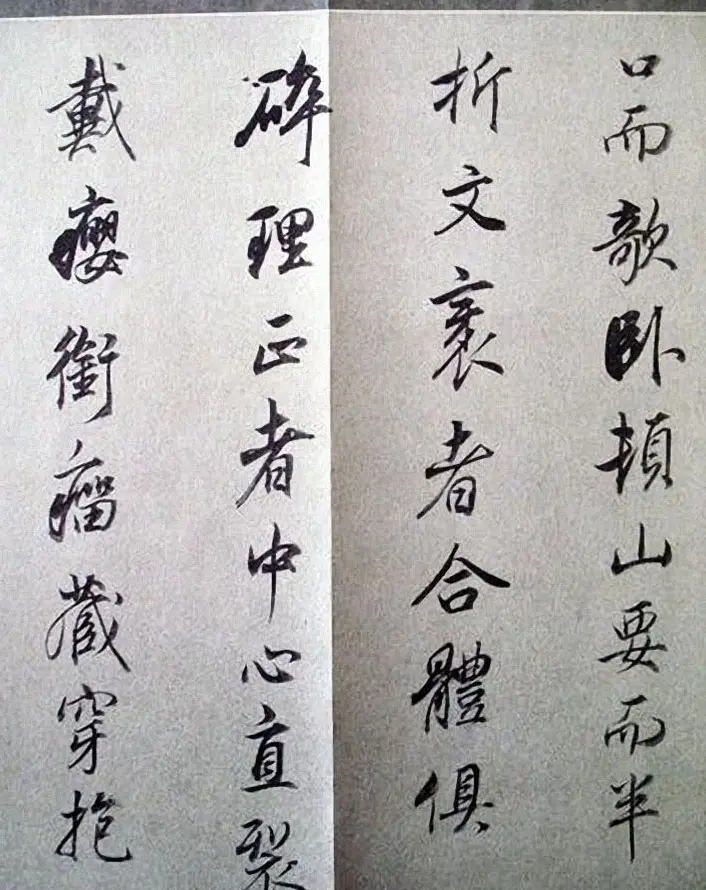 口而欹卧頓山要而半
折文裹者合體俱
碎理正者中心直裂
戴癭銜瘤藏穿抱